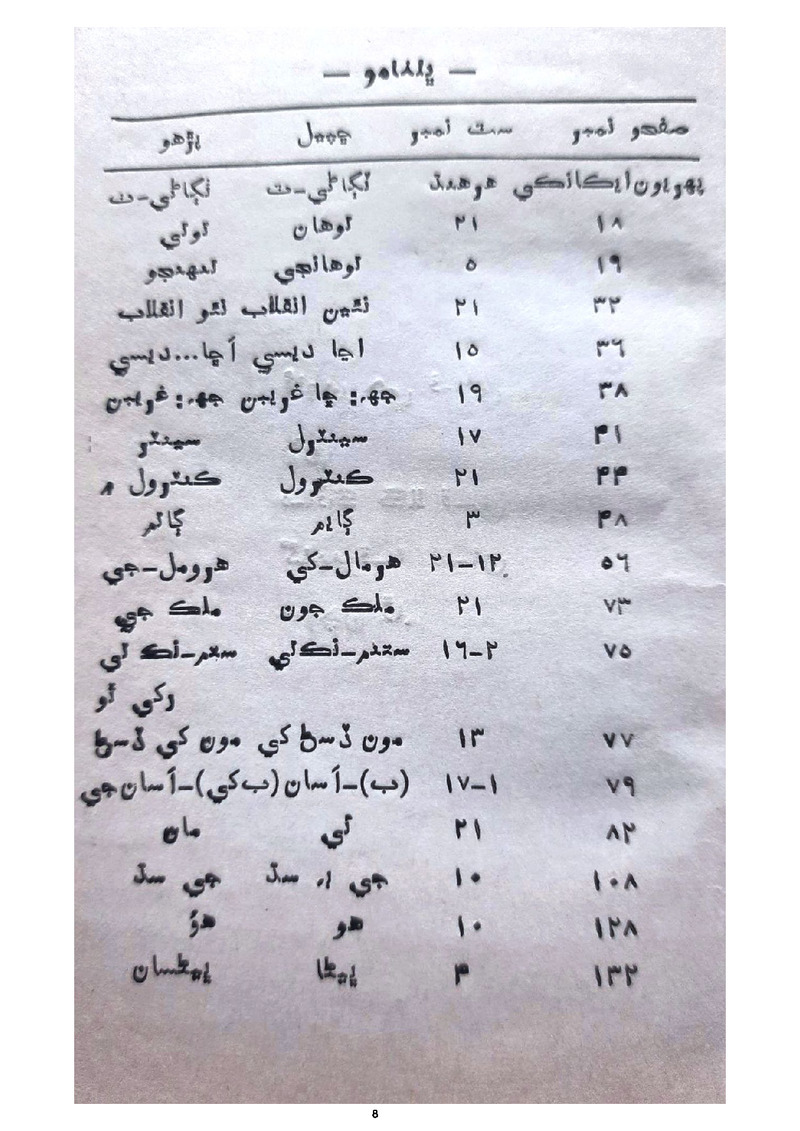 — ڀلنامو —
صفحو نمبر ست نمبر ڇپيل پڙهو
پهريون ايڪانڪي هر هنڌ نڳاڻي-ت نڳاڻي-ت
١٨ ٢١ لوهان لولي
١٩ ٥ لوهانجي
٣٢ ٢١ نئين انقلاب نئو انقلاب
٣٦ ١٥ اڇا ديسي اَڇا...ديسي
٣٨ ١٩ جهہ: ڇا غريبن جهہ: غريبن
٤١ ١٧ سينٽرل سينٽر
٤٤ ٢١ ڪنٽرول ڪنٽرول ۾
٤٨ ٣ ڳايم ڳالھ
٥٦ ١٢-٢١ هرمال-کي هرومل-جي
٧٣ ٢١ ملڪ جون ملڪ جي
٧٥ ٢-١٦ ستم-نڪلي
رکي ٿو
٧٧ ١٣ مون ڏسڻ کي مون کي ڏسڻ
٧٩ ١-١٧ (ب)-اَسان (ب کي)-اَسان جي
٨٢ ٢١ لي مان
١٠٨ ١٠ جي ۽ سڌ جي سڌ
١٢٨ ١٠ هو هوُ
١٣٢ ٣ ڀيڻا ڀيڻسان
8